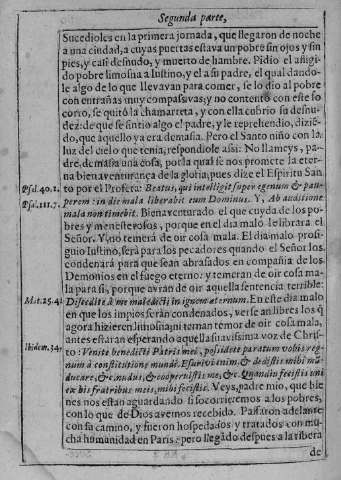 Segunda parte,
Sucedioles en la primera jornada, que llegaron de noche
a vna ciudad, a cuyas puertas estava vn pobre sin ojos y sin
pies, y casi desnudo, y muerto de hambre. Pidio el afligi-
do pobre limosna a Iustino, y el a su padre, el qual dando-
le algo de lo que lleva van para comer, se lo dio al pobre
con entrañas muy compassivas; y no contento con este so
corro, se quitò la chamarreta, y con ella cubrio su desnu-
dez: de que se sintio algo el padre, y le reprehendio, dizië-
do, que aquello ya era demasia. Pero el Santo niño con la
luz del cielo que tenia, respondiole assi: No llameys, pa-
dre, demasia vna cosa, por la qual se nos promete la eter-
na bienaventurança de la gloria, pues dize el Espiritu San
Psal.40.1. to por el Profeta: Beatus, qui intelligit super egenum & pau-
Psal.111.7. perem: in die mala liberabit eum Dominus. Y, Ab auditione
mala non timebit. Bienaventurado el que cuyda de los po-
bres y menesterosos, porque en el dia malo le librarà el
Señor. Y, no temerà de oir cosa mala. El dia malo prosi-
guio Iustino, serà para los pecadores quando el Señor los
condenarà para que sean abrasados en compañia de los
Demonios en el fuego eterno: y temeràn de oir cosa ma-
la para si, porque avràn de oir aquella sentencia terrible:
Mat.25.41 Discedite à me maledicti in ignem æternum. En este dia malo
en que los impios seràn condenados, verse an libres los q̃
agora hizieren limosna; ni tendran temor de oir cosa mala,
antes estaran esperando aquella suavissima voz de Chris-
Ibidem.34. to: Venite benedicti Patris mei, possidete paratum vobis reg-
num à constitutione mundi. Esurivi enim, & dedistis mihi mã-
ducare, &c. nudus, & cooperuistis me, &c. Quandiu fecistis uni
ex his fratribus meis, mihi fecistis. Veys, padre mio, que bie
nes nos estan aguardando si socorrieremos a los pobres,
con lo que de Dios avemos recebido. Passaron adelante
con su camino, y fueron hospedados y tratados con mu-
cha humanidad en Paris: pero llegãdo despues a la ribera
de